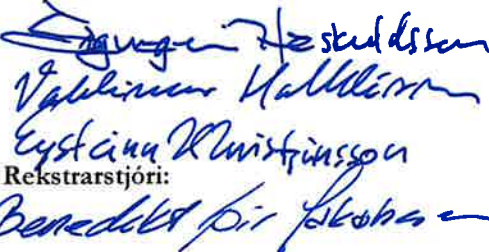 Sigurgeir Höskuldsson
Valdimar Halldórsson
Eysteinn Kristjánsson
Rekstrarstjóri:
Benedikt Þór Jakobsson